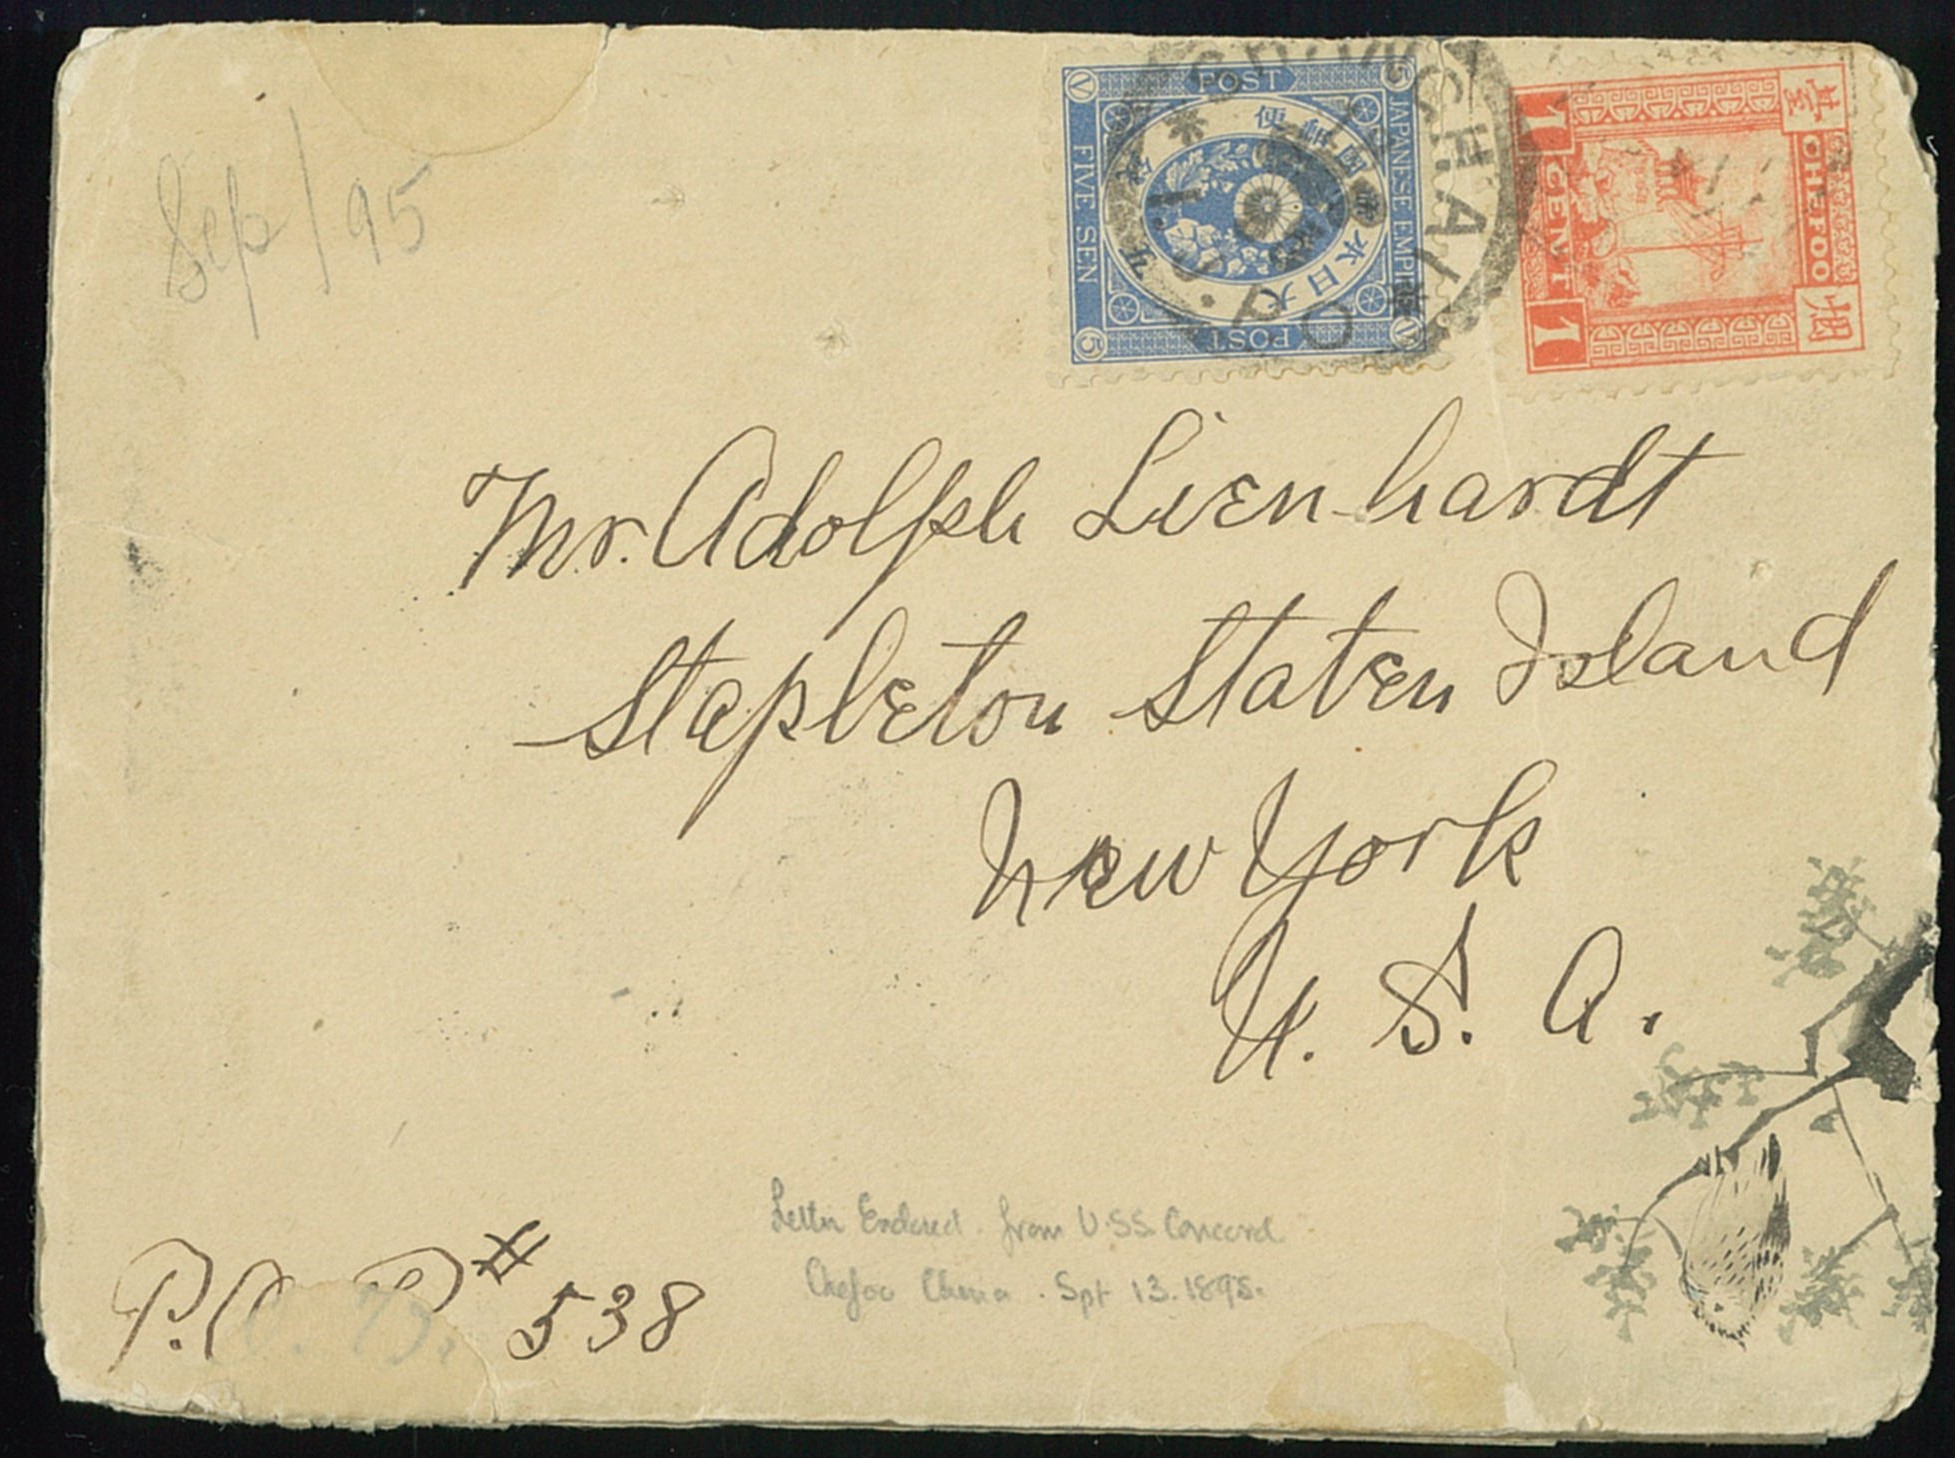 Sep/95
POST
V 5
JAPANESE EMPIRE
FIVE SEN
大日本帝國郵便
五
POST
5 V
SHANGHAI
I.J.P.O.
1 CENT 1
CHEFOO
煙
臺
Mr. Adolph Lienhardt
Stapleton Staten Island
New York
U. S. A.
Letter Enclosed from U.S.S. Concord
Chefoo China. Spt 13. 1895.
P.O. B # 538